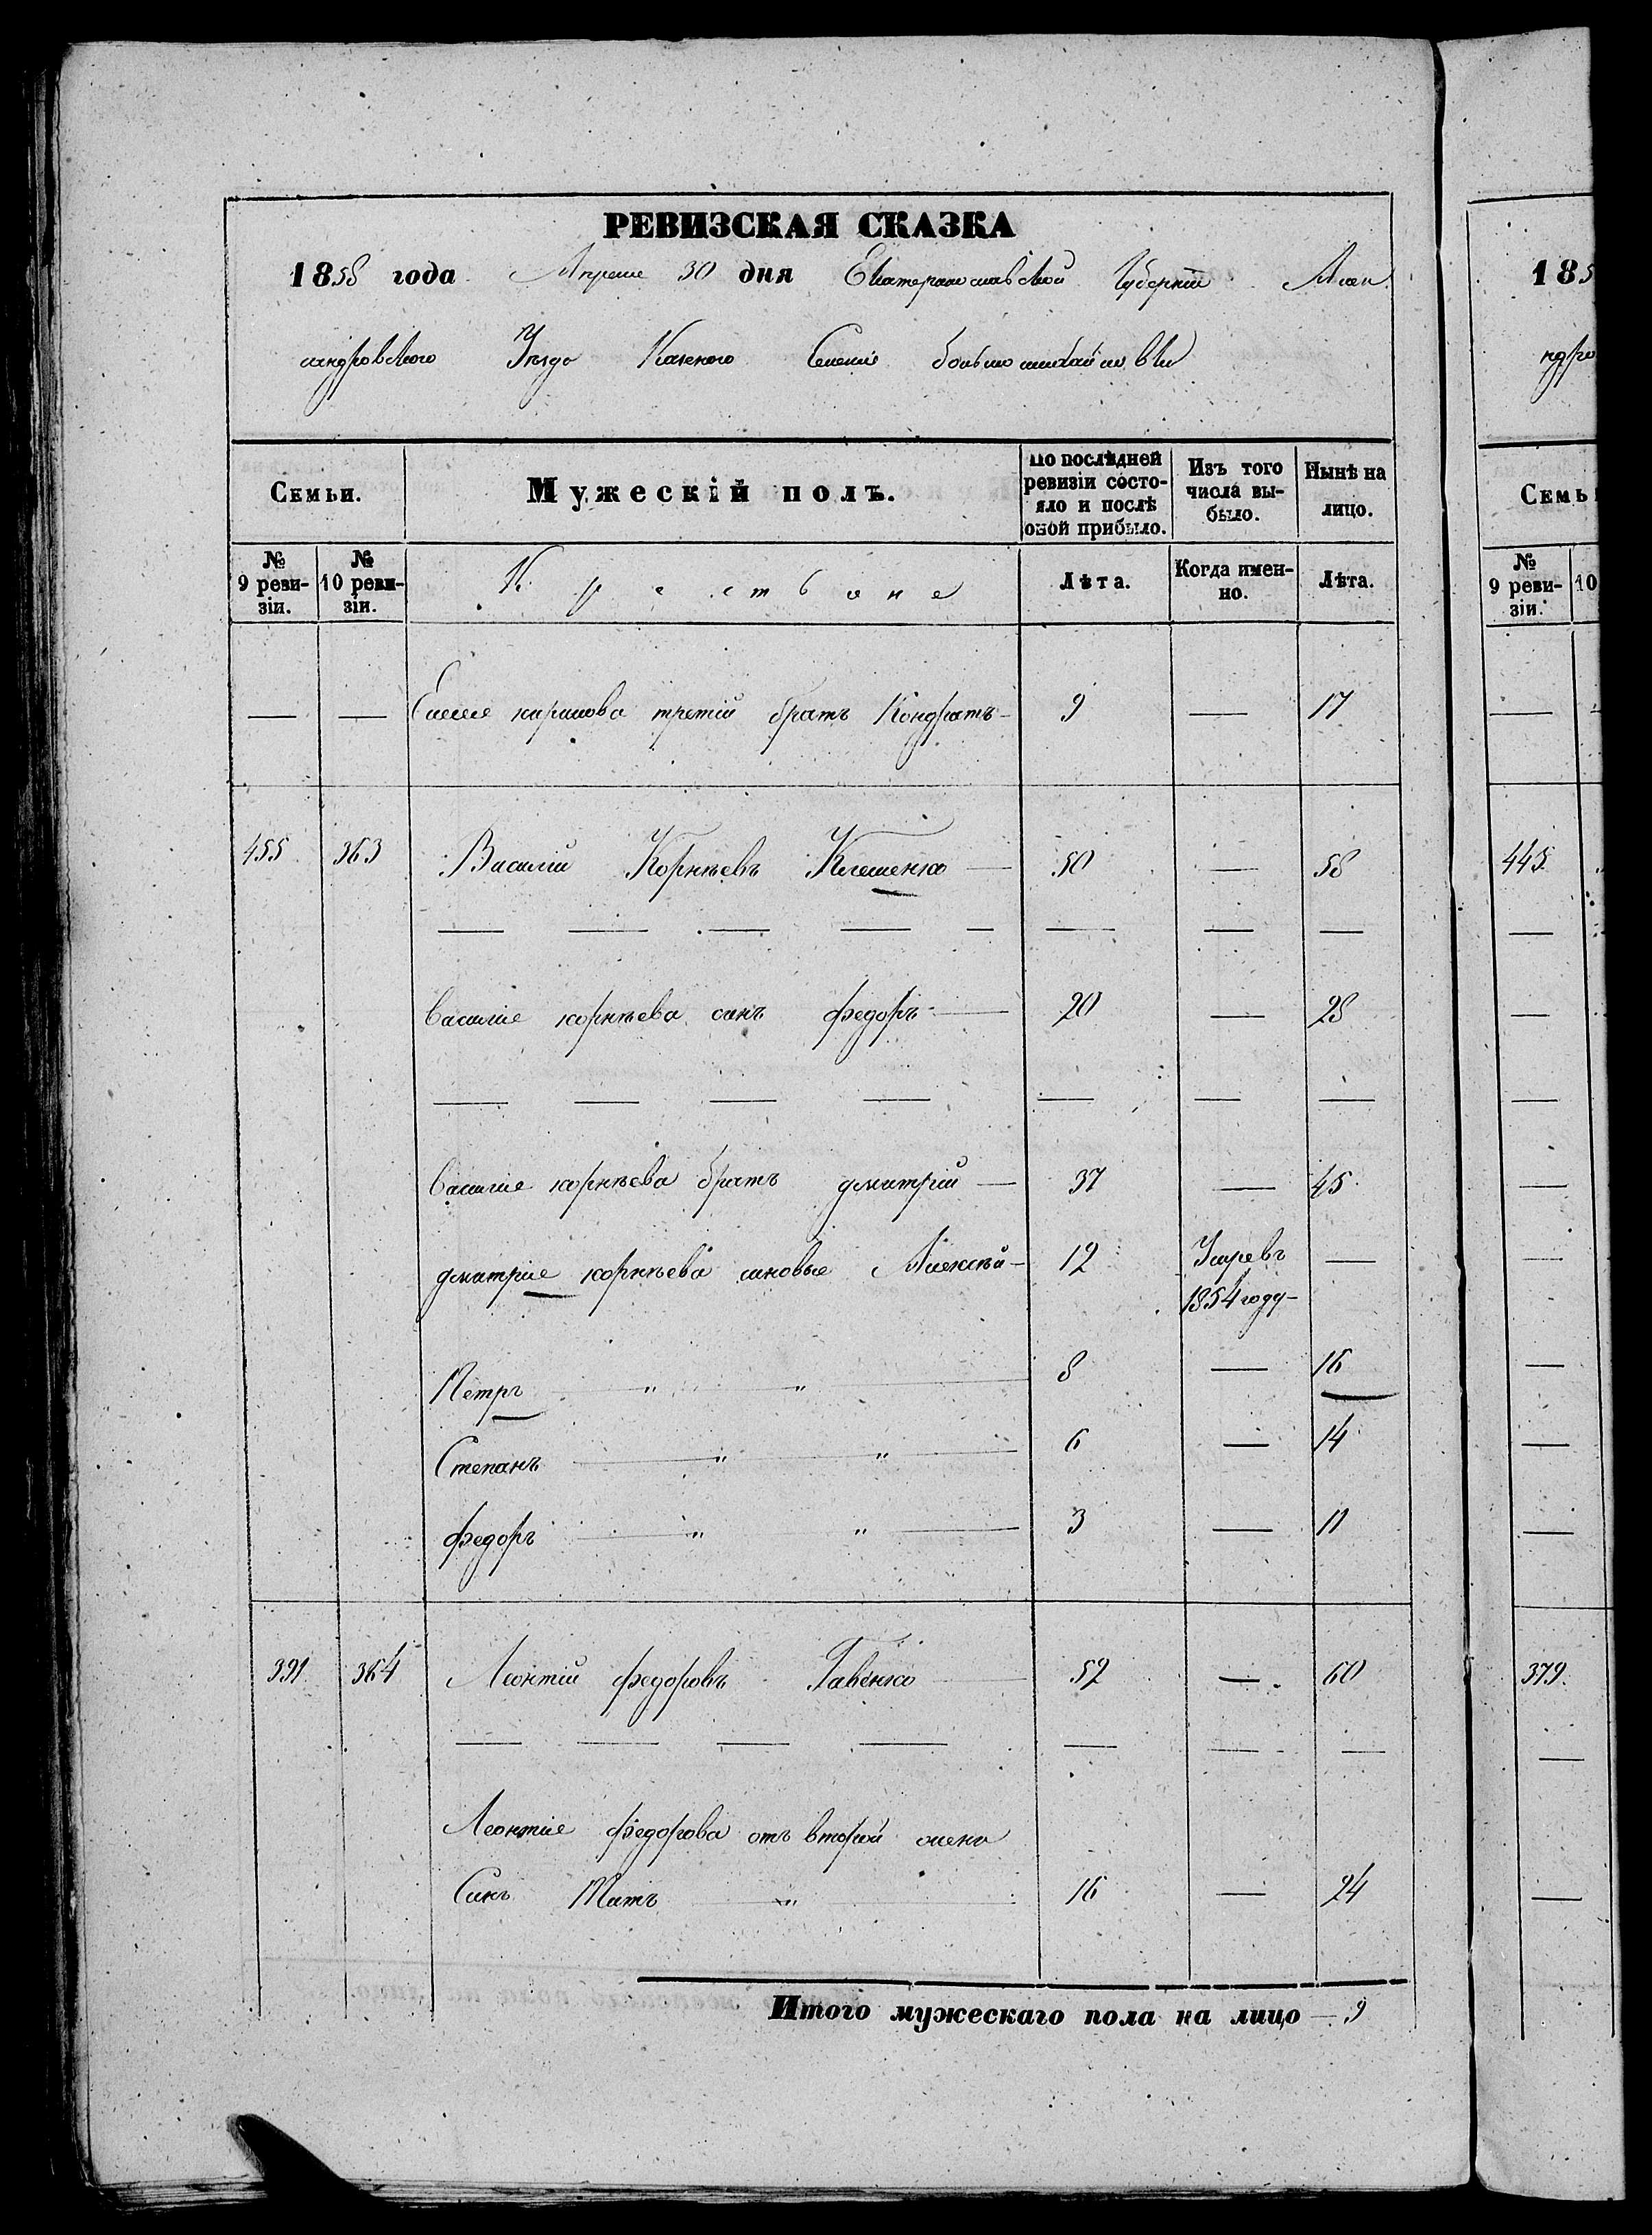 РЕВИЗСКАЯ СКАЗКА
1858 года Апреле 30 дня Екатеринославской Губернии Алек
сандровского Уезда Казеного Селение большомихайловки
Семьи. Мужескій полъ. По послѣдней ревизіи состояло и послѣ оной прибыло. Изъ того числа выбыло. Нынѣ на лицо.
№ 9 ревизіи. № 10 ревизіи. Крестьяне Лѣта. Когда именно. Лѣта.
— — кирилова третій братъ Кондратъ — 9 — 17
455 363 Василій Корнѣевъ Клешенко — 50 — 58
василие корнѣева синъ федоръ — 20 — 28
василие корнѣева братъ дмитрій — 37 — 45
дмитрие корнѣева синовые Алексѣй — 12 Умре въ —
1854 году —
Петръ " " 8 — 16
Степанъ " " 6 — 14
федоръ " " 3 — 11
391 364 Леонтій федоровъ Гавенко 52 — 60
Леонтие федорова отъ второй жены
Синъ Титъ " 16 — 24
Итого мужескаго пола на лицо — 9
185
ндро
Семь
№ 9 реви-зіи. 10
445
379